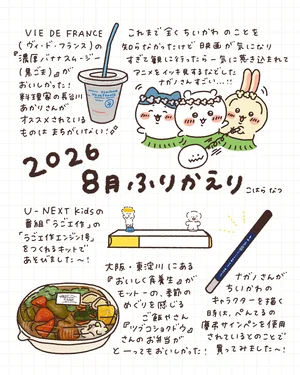 VIE DE FRANCE
(ヴィ・ド・フランス)の
『濃厚バナナスムージー
(黒ごま)』が
おいしかった！
料理家の長谷川
あかりさんが
オススメされている
ものはまちがいない！
これまで全くちいかわのことを
知らなかったけど映画が気になり
すぎて観に行ったら一気に惹き込まれて
アニメをイッキ見するなどした
ナガノさんすごい…!!
2026
8月ふりかえり
こはら なつ
U-NEXT Kidsの
番組「らご工作」の
「らご工作エンジン1号」
をつくれるキットで
あそびました〜！
大阪・東淀川にある
『おいしく食養生』が
モットーの、季節の
めぐりを感じる
ごはんや
『ツブコショクドウ』
さんのお弁当が
とーってもおいしかった！
ナガノさんが
ちいかわの
キャラクターを描く
時は、ぺんてるの
慶弔サインペンを使用
されているとのことで
買ってみました〜！